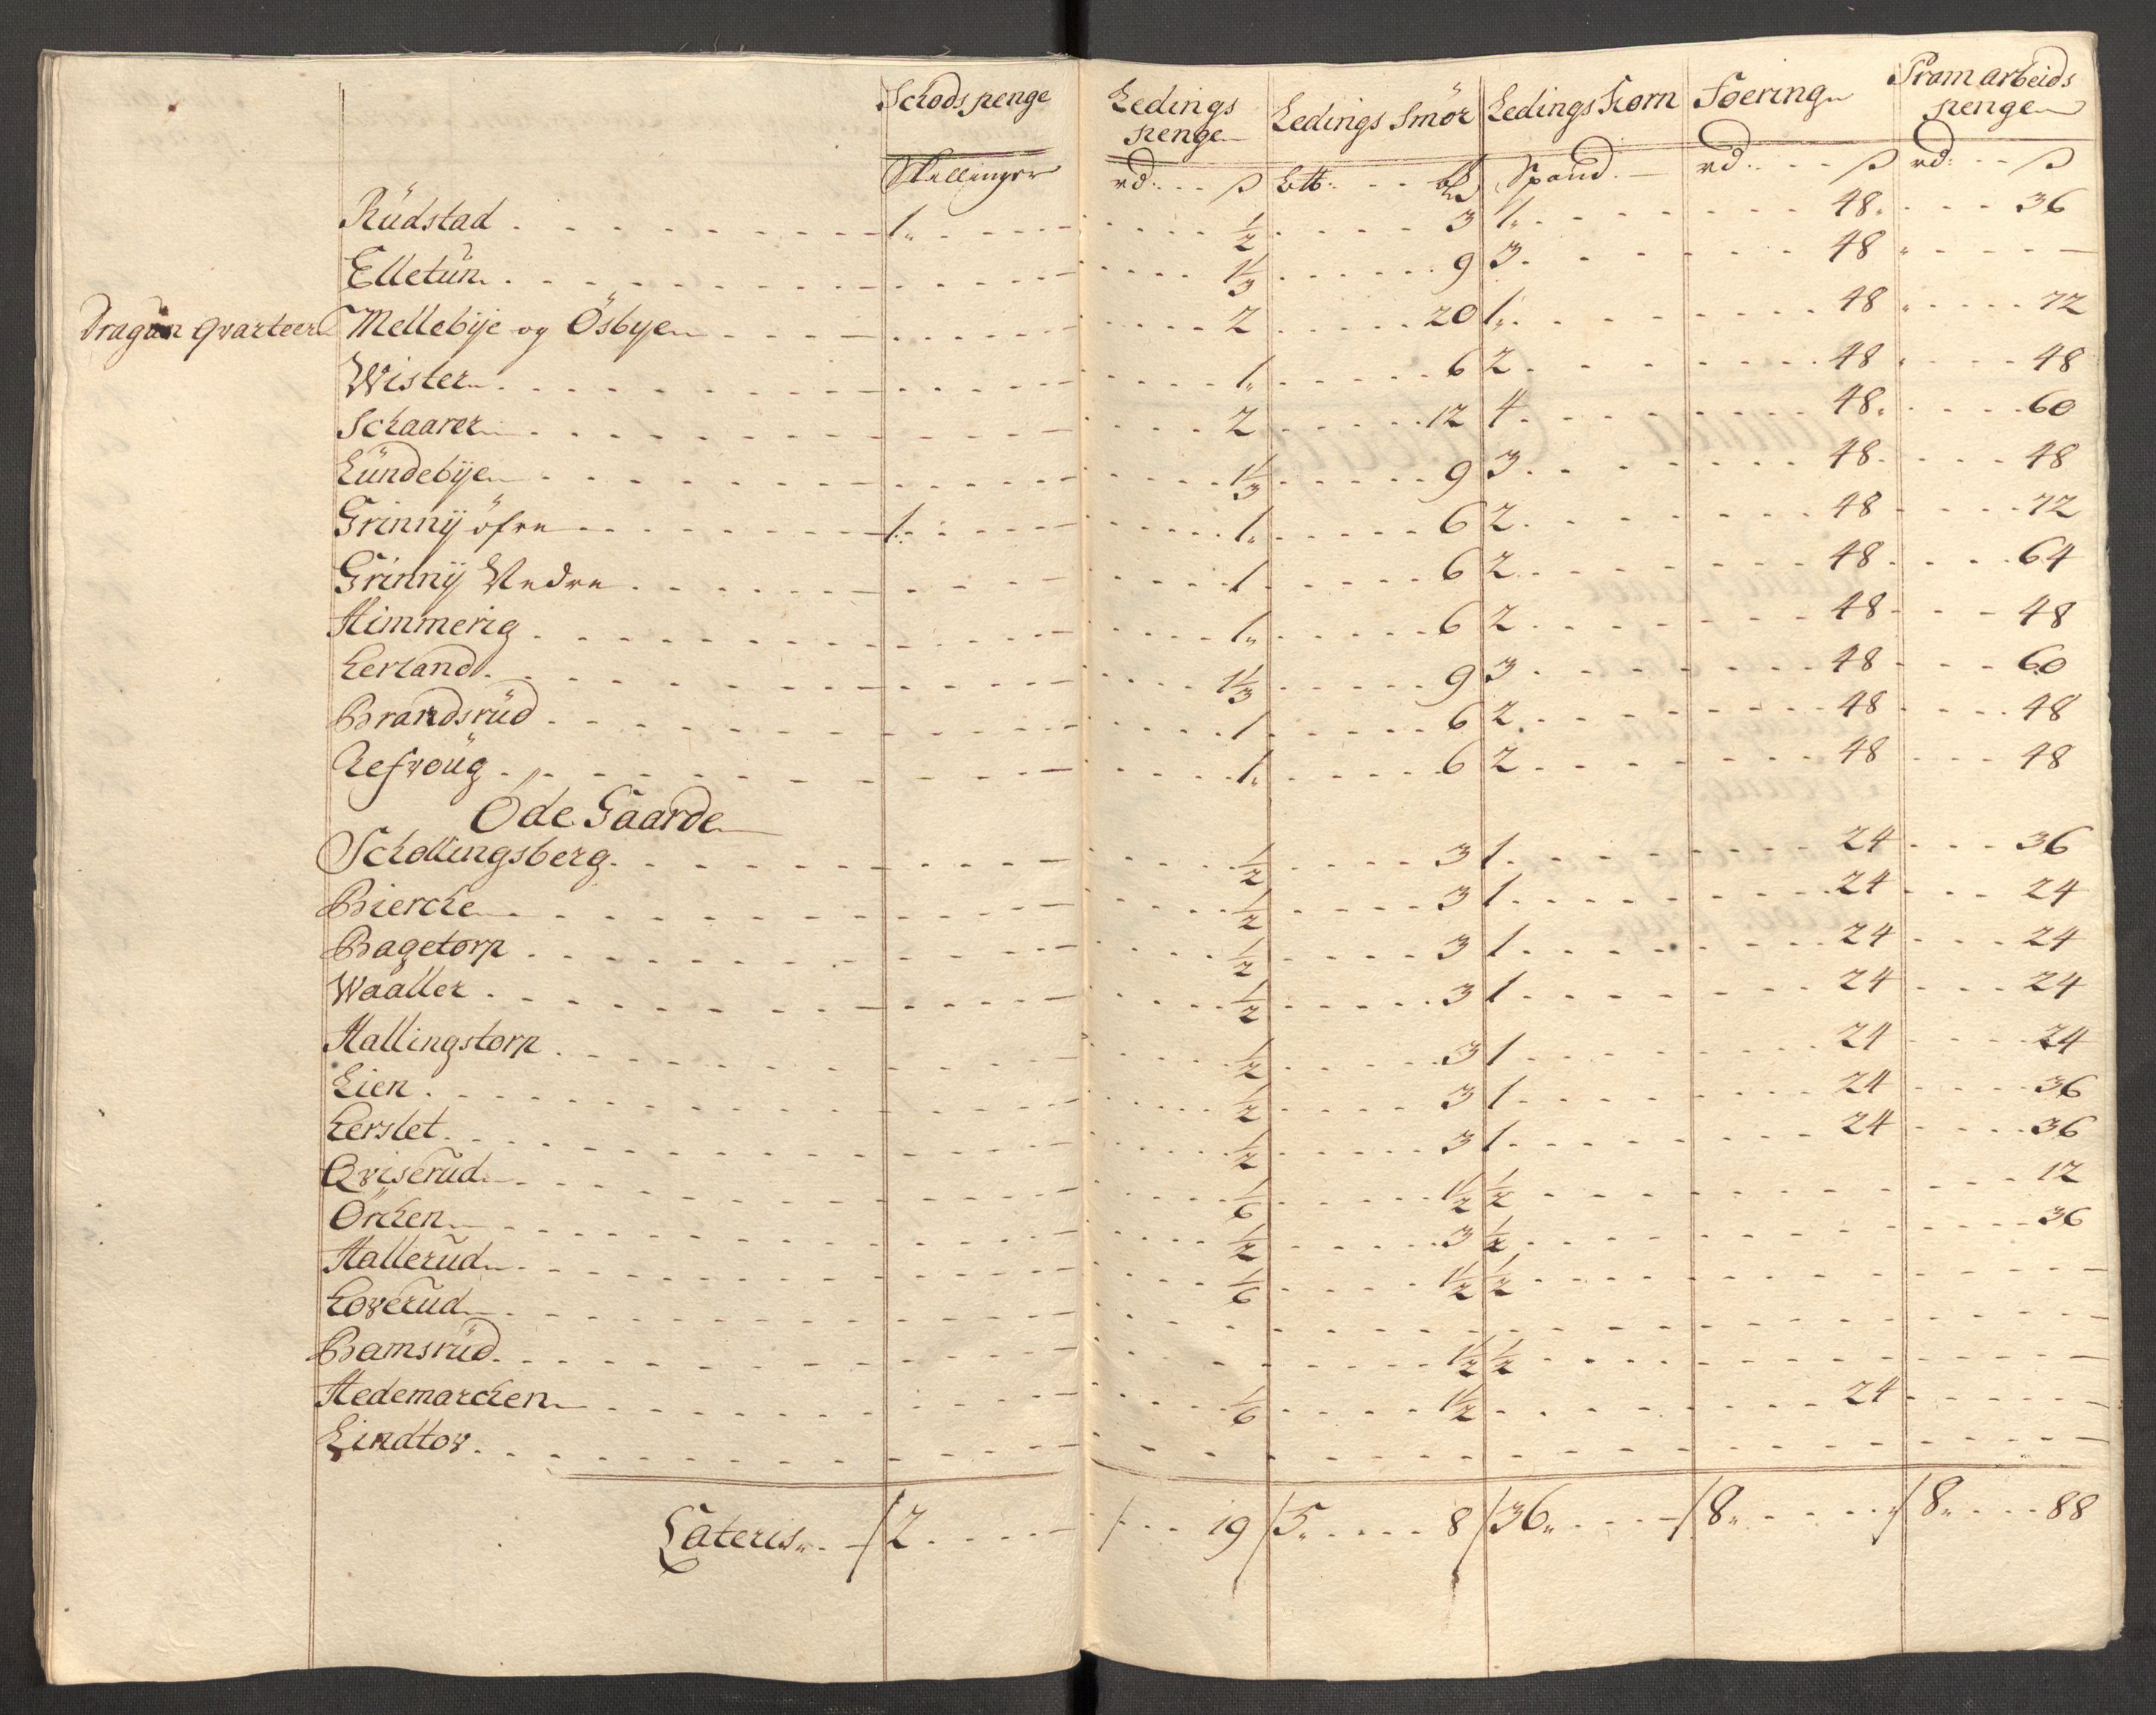 Schods penge Ledings penge Ledings Smör Ledings Korn Foering Pramarbeids penge
Skellinger rd: ß Ltt: Spand. rd: ß rd: ß
Rüdstad 1 ½ 3 1 48 36
Elletün 1⅓ 9 3 48
Dragün qvarteer Mellebÿe og Ösbye 2 20 1 48 72
Wister 1 6 2 48 48
Schaarer 2 12 4 48 60
Lündebÿe 1⅓ 9 3 48 48
Grinnÿ öfre 1 1 6 2 48 72
Grinnÿ Nedre 1 6 2 48 64
Himmerig 1 6 2 48 48
Lerland 1⅓ 9 3 48 60
Brandsrüd 1 6 2 48 48
Refvoüg 1 6 2 48 48
Öde Gaarde
Schollingsberg ½ 3 1 24 36
Bierche ½ 3 1 24 24
Bagetorp ½ 3 1 24 24
Waaller ½ 3 1 24 24
Hallingstorp ½ 3 1 24 24
Lien ½ 3 1 24 36
Lerslet ½ 3 1 24 36
Qviserud ⅙ 1½ ½ 12
Örchen ½ 3 ½ 36
Hallerud ⅙ 1½ ½
Loverud
Bamsrüd 1½ ½
Hedemarchen ⅙ 1½ 24
Lindtov
Lateris 2 19 5 8 36 8 8 88